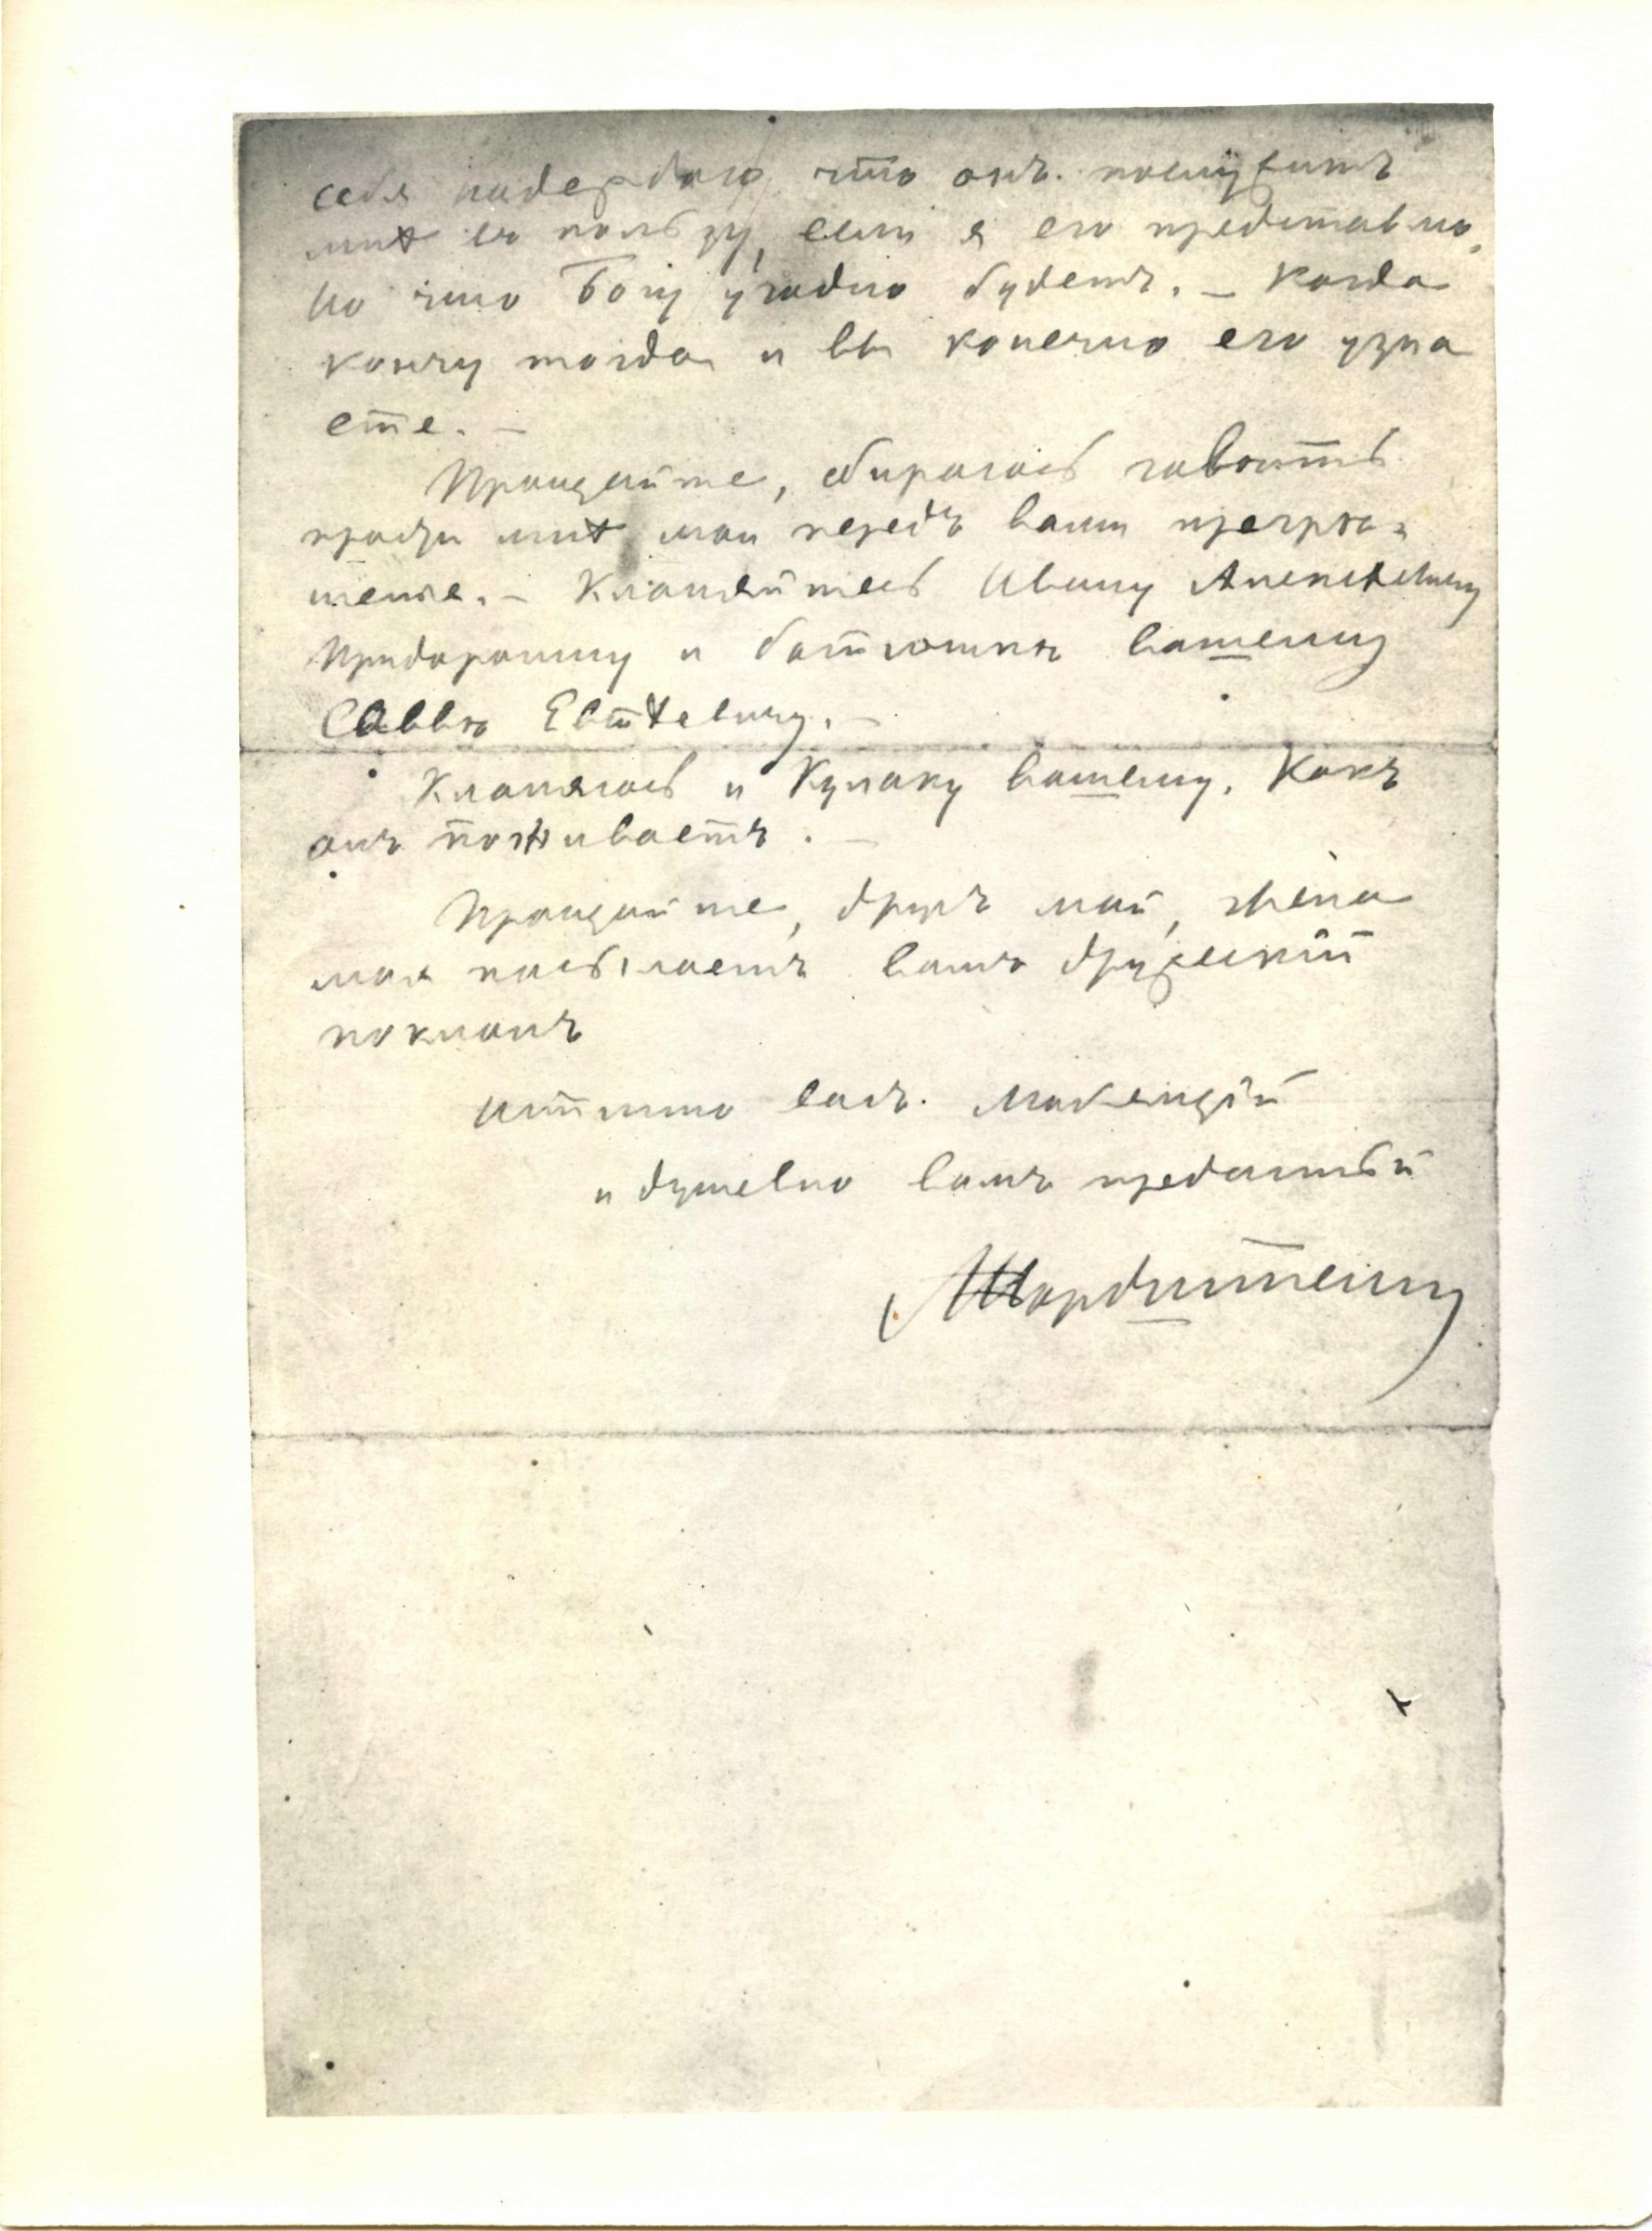 себя надержаю, что онъ послужитъ
мнѣ въ пользу, если я его представлю,
но что Богу угодно будетъ. – Когда
кончу тогда и вы конечно его узна
ете. –
Прощайте, сбираюсь говѣть
прости мнѣ мои передъ вами прегрѣ=
шенія. – Кланяйтесь Ивану Алексѣевичу
Придорогину и батюшкѣ вашему
Саввѣ Евтѣевичу. –
Кланяюсь и Кулаку вашему. Какъ
онъ поживаетъ. –
Прощайте, другъ мой, жена
моя посылаетъ вамъ дружескій
поклонъ
Истинно васъ любящій
и душевно вамъ преданный